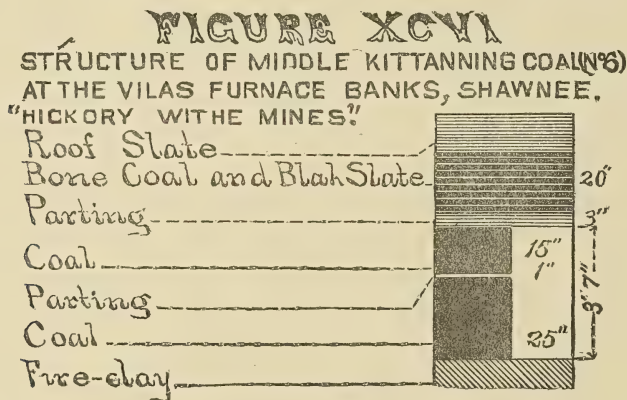 FIGURE XCVI
STRUCTURE OF MIDDLE KITTANNING COAL (Nº6)
AT THE VILAS FURNACE BANKS, SHAWNEE.
"HICKORY WITHE MINES."
Roof Slate
Bone Coal and Blah Slate 20"
Parting 3"
Coal 15"
1"
Parting
3' 7"
Coal 25"
Fire-clay